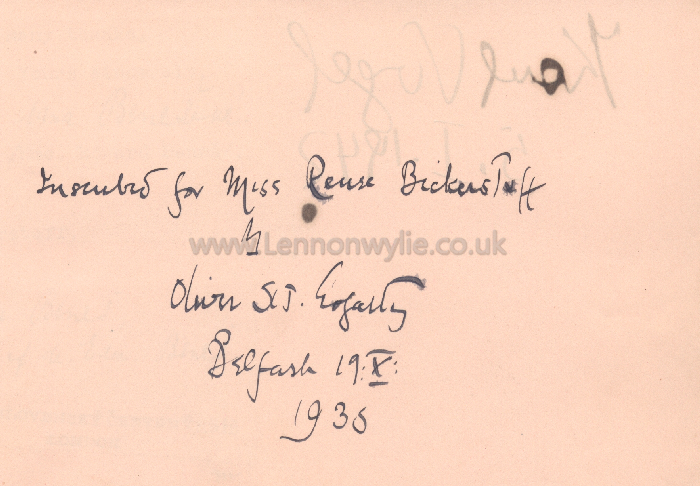 Inscribed for Miss Renee Bickerstaff
by
www.Lennonwylie.co.uk
Oliver St J. Gogarty
Belfast 19:X:
1935